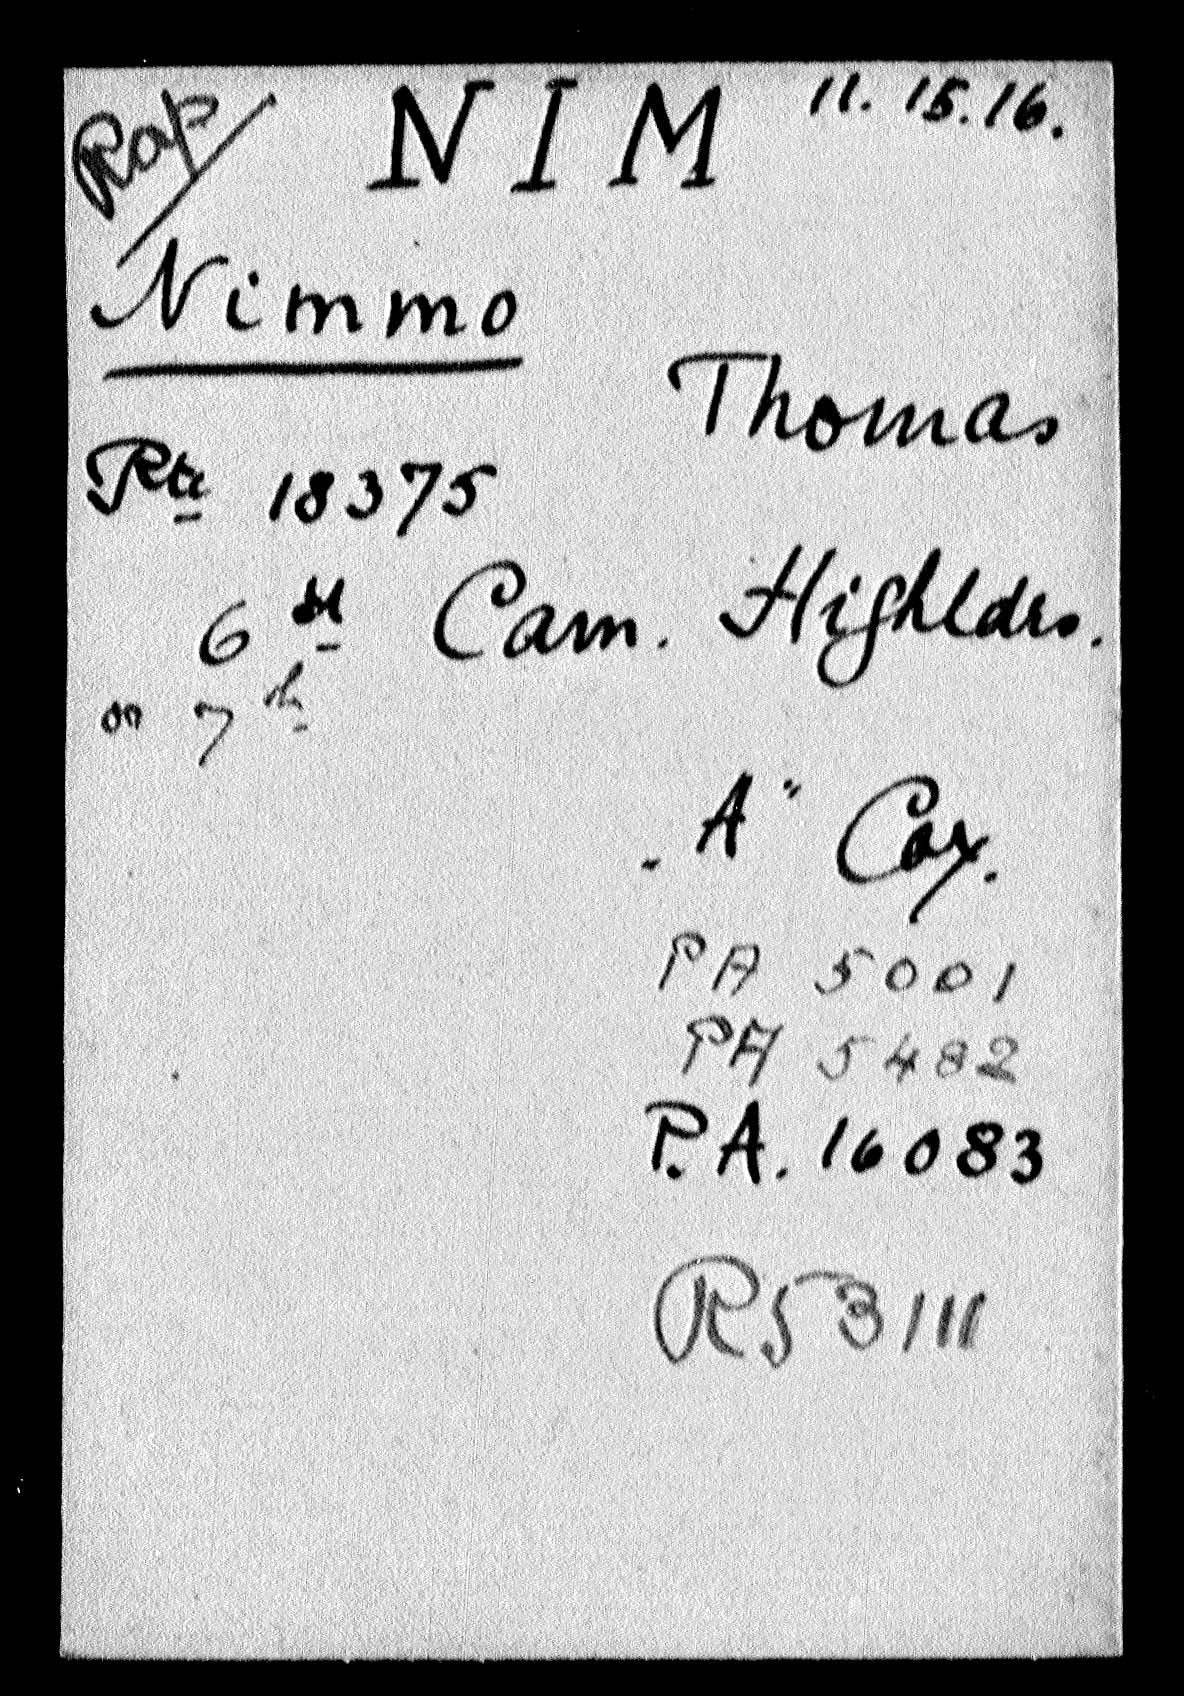 Rap
NIM 11. 15. 16.
Nimmo
Thomas
Pte 18375
6 Cam. Highldrs.
or 7th
"A" Coy.
PA 5001
PA 5482
P.A. 16083
R53111